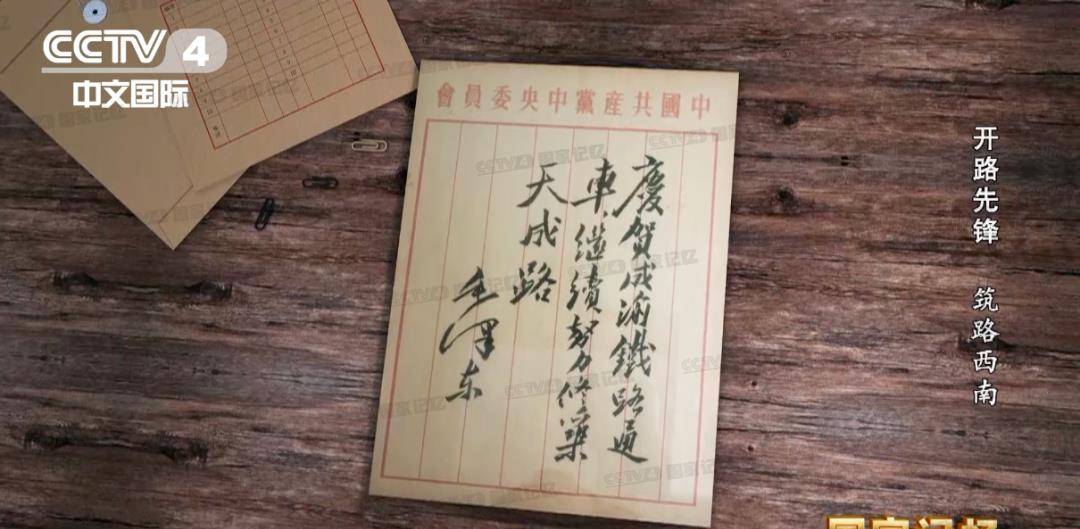 CCTV 4
中文国际
中國共産黨中央委員會
慶賀成渝鐵路通
車，繼續努力修築
天成路
毛澤东
开路先锋 筑路西南
CCTV4 国家记忆
国家记忆